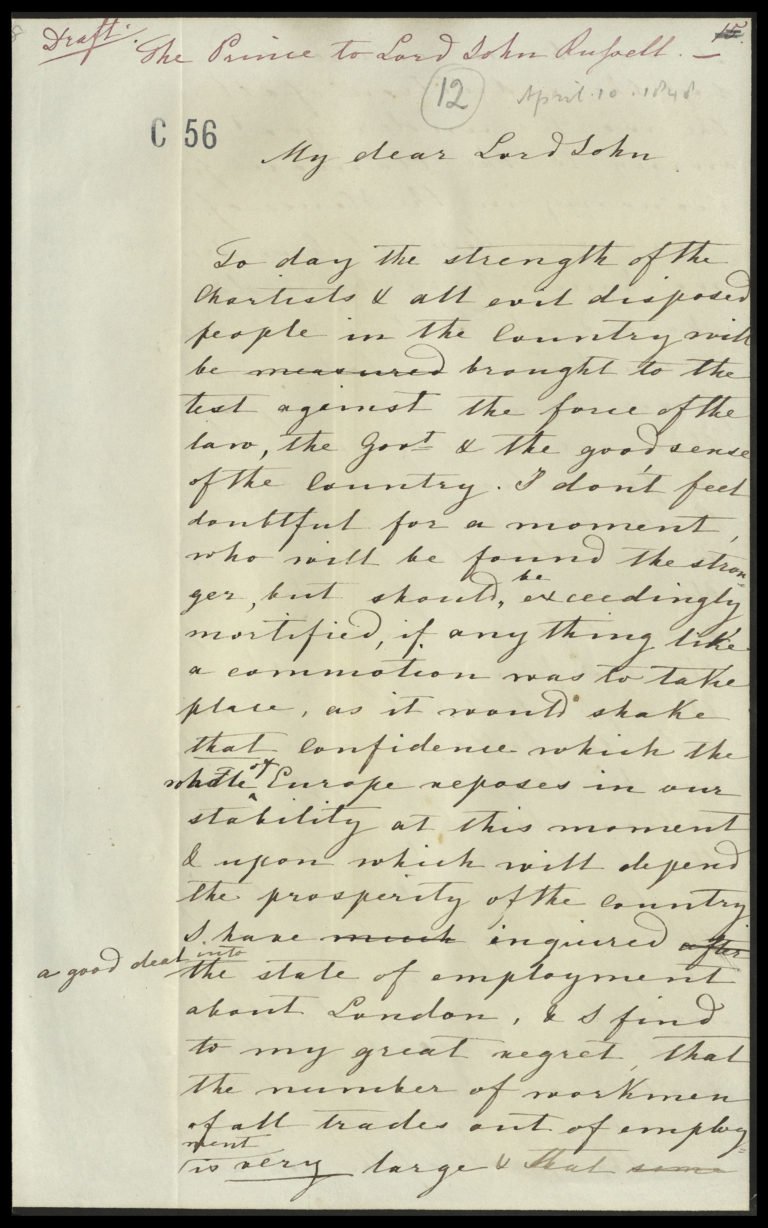 Draft. The Prince to Lord John Russell. —
15.
12
April. 10. 1848
C 56
My dear Lord John
To day the strength of the
Chartists & all evil disposed
people in the Country will
be measured brought to the
test against the force of the
law, the Govt & the good sense
of the Country. I don't feel
doubtful for a moment,
who will be found the stron=
ger, but should, be exceedingly
mortified, if any thing like
a commotion was to take
place, as it would shake
that confidence which the
whole of Europe reposes in our
stability at this moment
& upon which will depend
the prosperity of the country
I have much inquired after
a good deal into
the state of employment
about London, & I find
to my great regret, that
the number of workmen
of all trades out of employ=
ment
is very large & that some